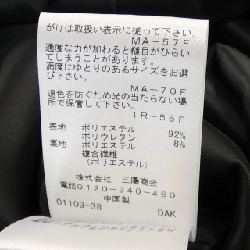 がけは取扱い表示に従って下さい。
MA-57F
適度な力が加わると縫目がひらい
てしまうことがあります。
満度にゆとりのあるサイズをお選
び下さい。
MA-70F
退色を防ぐため光の当たらない場
所で保管して下さい。
IR-56F
表地 ポリエステル 92%
ポリウレタン 8%
裏地 ポリエステル
複合繊維
(ポリエステル)
株式会社 三陽商会
電話0120-340-460
中国製
01109-38 DAK